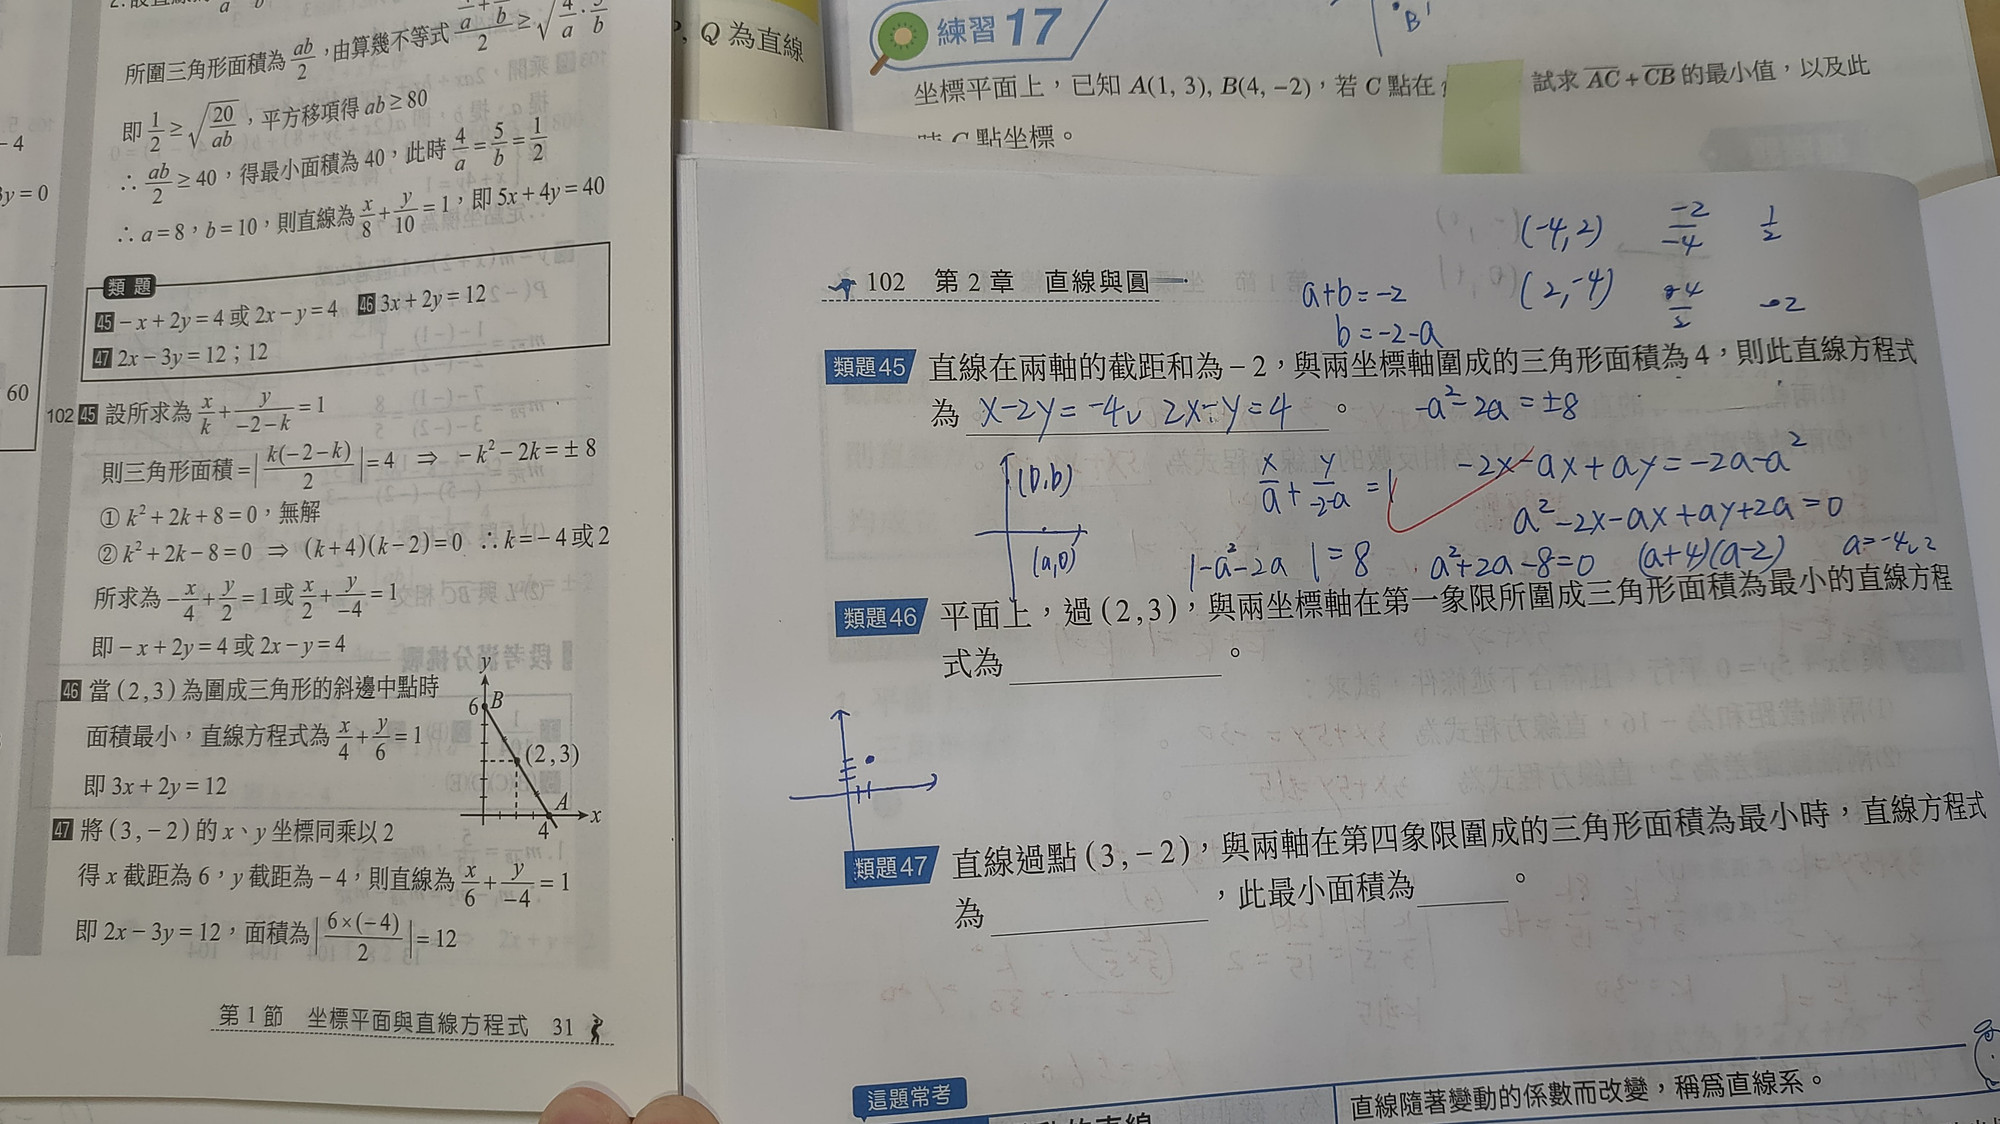 所圍三角形面積為 ab/2，由算幾不等式 (4/a + 5/b)/2 ≥ √(4/a · 5/b)
即 1/2 ≥ √(20/ab)，平方移項得 ab ≥ 80
∴ ab/2 ≥ 40，得最小面積為 40，此時 4/a = 5/b = 1/2
∴ a = 8，b = 10，則直線為 x/8 + y/10 = 1，即 5x + 4y = 40
類題
45 −x + 2y = 4 或 2x − y = 4 46 3x + 2y = 12
47 2x − 3y = 12；12
102 45 設所求為 x/k + y/(−2−k) = 1
則三角形面積 = |k(−2−k)/2| = 4 ⇒ −k² − 2k = ±8
① k² + 2k + 8 = 0，無解
② k² + 2k − 8 = 0 ⇒ (k+4)(k−2) = 0 ∴ k = −4 或 2
所求為 −x/4 + y/2 = 1 或 x/2 + y/−4 = 1
即 −x + 2y = 4 或 2x − y = 4
46 當 (2,3) 為圍成三角形的斜邊中點時
面積最小，直線方程式為 x/4 + y/6 = 1
即 3x + 2y = 12
y
6 B
(2,3)
A
x
4
47 將 (3,−2) 的 x、y 坐標同乘以 2
得 x 截距為 6，y 截距為 −4，則直線為 x/6 + y/−4 = 1
即 2x − 3y = 12，面積為 |6×(−4)/2| = 12
第 1 節 坐標平面與直線方程式 31
−4
3y = 0
60
Q 為直線
練習 17
B'
坐標平面上，已知 A(1, 3), B(4, −2)，若 C 點在
試求 AC + CB 的最小值，以及此
時 C 點坐標。
102 第 2 章 直線與圓
(-4,2) -2/-4 1/2
(2,-4) -4/2 -2
a+b=-2
b=-2-a
類題45 直線在兩軸的截距和為 −2，與兩坐標軸圍成的三角形面積為 4，則此直線方程式
為 x-2y=-4 ∨ 2x-y=4 。
-a²-2a=±8
(0,b)
(a,0)
x/a + y/-2-a = 1
-2x-ax+ay=-2a-a²
a²-2x-ax+ay+2a=0
|-a²-2a|=8
a²+2a-8=0 (a+4)(a-2) a=-4∨2
類題46 平面上，過 (2,3)，與兩坐標軸在第一象限所圍成三角形面積為最小的直線方程
式為 。
類題47 直線過點 (3,−2)，與兩軸在第四象限圍成的三角形面積為最小時，直線方程式
為 ，此最小面積為 。
這題常考
直線隨著變動的係數而改變，稱為直線系。